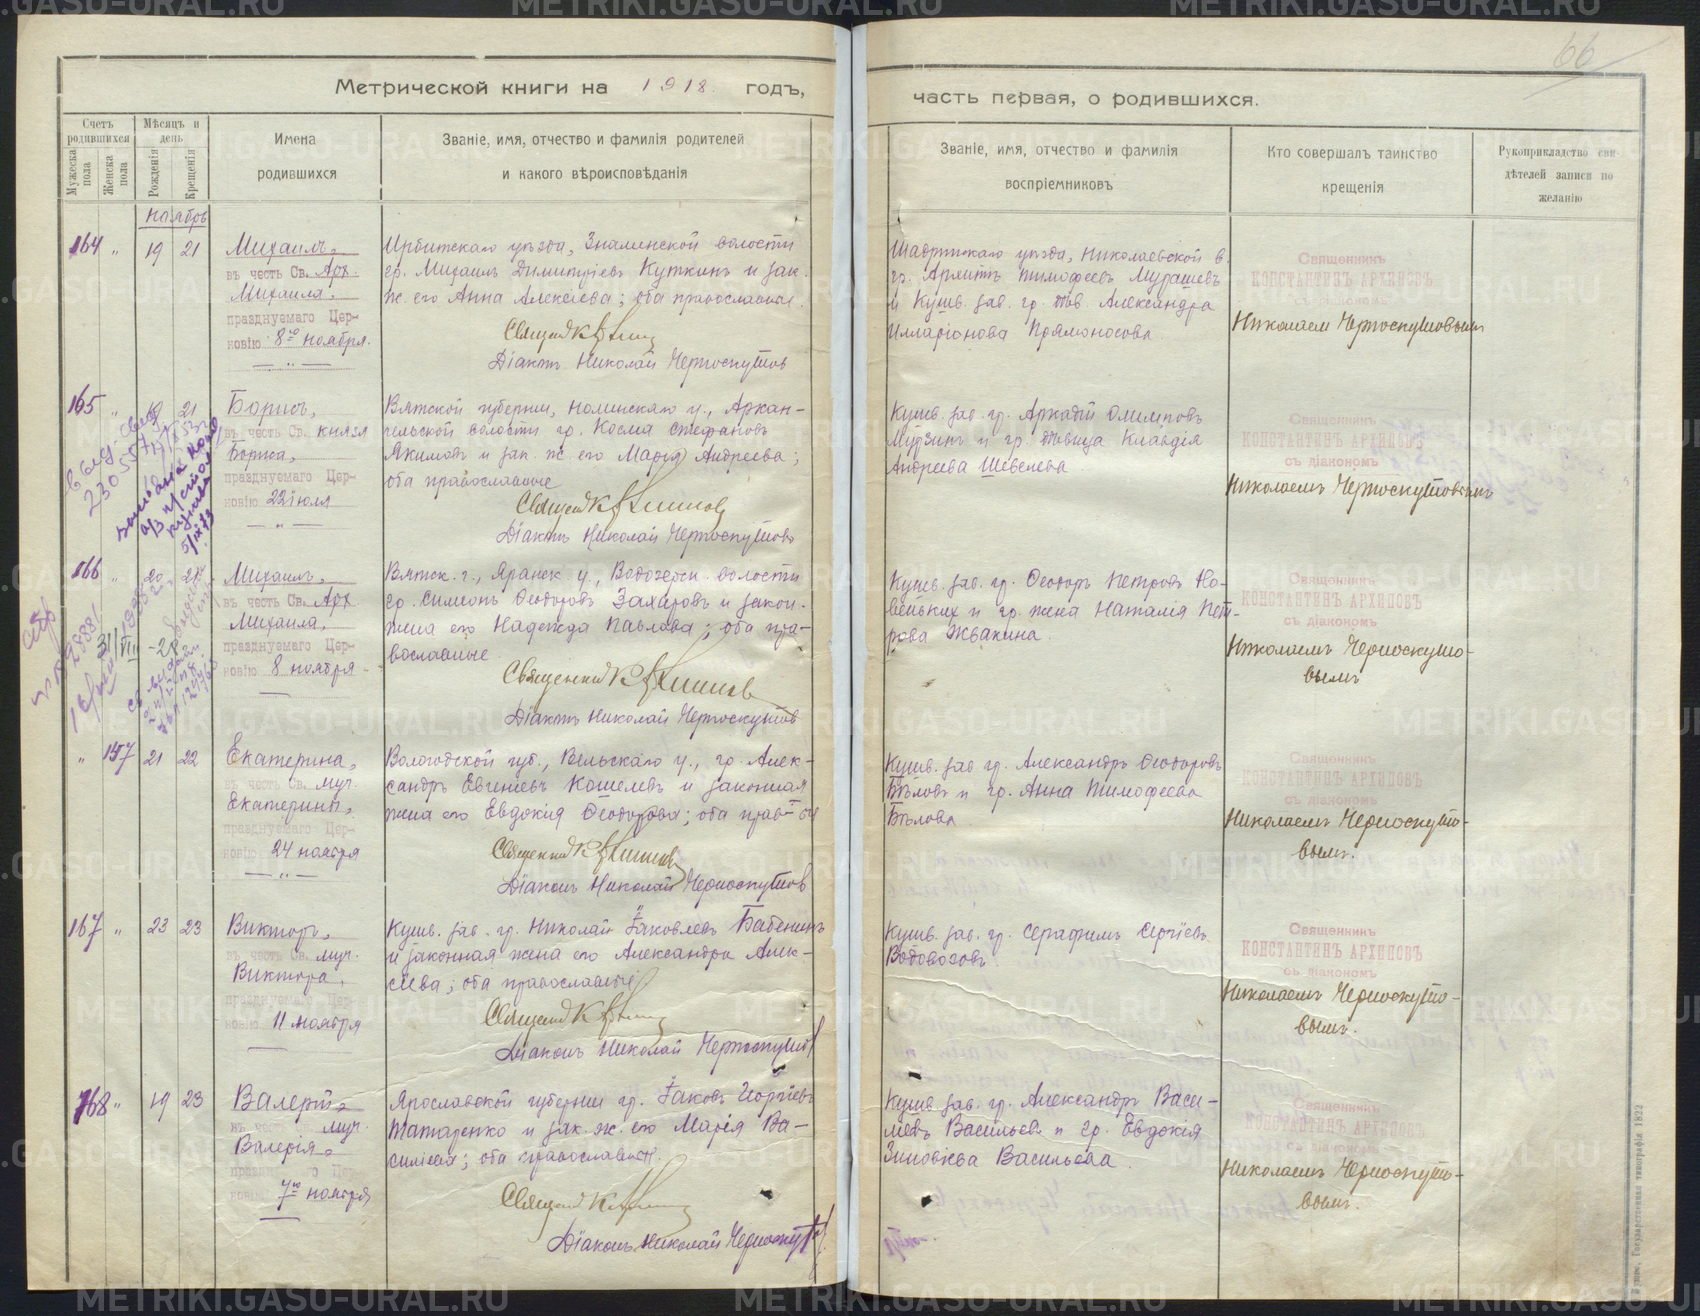 66
Метрической книги на 1918 годъ,
часть первая, о родившихся.
Счетъ родившихся
Мужеска пола
Женска пола
Мѣсяцъ и день
Рожденія
Крещенія
Имена
родившихся
Званіе, имя, отчество и фамилія родителей
и какого вѣроисповѣданія
Званіе, имя, отчество и фамилія
воспріемниковъ
Кто совершалъ таинство
крещенія
Рукоприкладство сви-
дѣтелей записи по
желанію
Ноябрь
164 " 19 21
Михаилъ,
въ честь Св. Арх.
Михаила,
празднуемаго Цер-
ковію 8го ноября.
Ирбитскаго уѣзда, Знаменской волости
гр. Михаилъ Димитріевъ Куткинъ и зак.
ж. его Анна Алексѣева; оба православные.
Діаконъ Николай Черноскутовъ
Шадринскаго уѣзда, Николаевской в.
гр. Архипъ Тимофеевъ Мурашевъ
и Кушв. зав. гр. Александра
Иларіонова Прямоносова.
Священникъ
КОНСТАНТИНЪ АРХИПОВЪ
съ діакономъ
Николаем Черноскутовымъ
165 " 19 21
Борисъ,
въ честь Св. князя
Бориса,
празднуемаго Цер-
ковію 22 іюля
Вятской губерніи, Нолинскаго у., Архан-
гельской волости гр. Косма Стефановъ
Якимовъ и зак. ж. его Марія Андреева;
оба православные
Діаконъ Николай Черноскутовъ
Кушв. зав. гр. Аркадій Олимповъ
Мурзинъ и гр. дѣвица Клавдія
Андреева Шевелева
Священникъ
КОНСТАНТИНЪ АРХИПОВЪ
съ діакономъ
Николаемъ Черноскутовымъ
166 " 20 21
Михаилъ,
въ честь Св. Арх.
Михаила,
празднуемаго Цер-
ковію 8 ноября
Вятск. г., Яранск. у., волости
гр. Симеонъ Ѳеодоровъ Захаровъ и закон.
жена его Надежда Павлова; оба пра-
вославные
Священникъ К. Архиповъ
Діаконъ Николай Черноскутовъ
Кушв. зав. гр. Ѳеодоръ Петровъ Но-
веньких и гр. жена Наталія Пет-
рова Жвакина
Священникъ
КОНСТАНТИНЪ АРХИПОВЪ
съ діакономъ
Николаемъ Черноскуто-
вымъ
" 157 21 22
Екатерина,
въ честь Св. муч.
Екатерины,
празднуемаго Цер-
ковію 24 ноября
Вологодской губ., Вельскаго у., гр. Алек-
сандръ Евгеніевъ Кошелевъ и законная
жена его Евдокія Ѳеодорова; оба прав-ые
Священникъ К. Архиповъ
Діаконъ Николай Черноскутовъ
Кушв. зав. гр. Александръ Ѳеодоровъ
Бѣловъ и гр. Анна Тимофеева
Бѣлова
Священникъ
КОНСТАНТИНЪ АРХИПОВЪ
съ діакономъ
Николаемъ Черноскуто-
вымъ.
167 " 23 23
Викторъ,
въ честь Св. муч.
Виктора,
празднуемаго Цер-
ковію 11 ноября
Кушв. зав. гр. Николай Іаковлевъ Бабенинъ
и законная жена его Александра Алек-
сѣева; оба православные
Діаконъ Николай Черноскутовъ
Кушв. зав. гр. Серафимъ Сергіевъ
Водовозовъ
Священникъ
КОНСТАНТИНЪ АРХИПОВЪ
съ діакономъ
Николаемъ Черноскуто-
вымъ.
168 " 19 23
Валерій,
въ честь муч.
Валерія,
празднуемаго Цер-
ковію 7го ноября
Ярославской губерніи гр. Іаковъ Георгіевъ
Татаренко и зак. ж. его Марія Ва-
силіева; оба православные.
Діаконъ Николай Черноскутовъ
Кушв. зав. гр. Александръ Васи-
ліевъ Васильевъ и гр. Евдокія
Зиновіева Васильева.
Священникъ
КОНСТАНТИНЪ АРХИПОВЪ
съ діакономъ
Николаемъ Черноскуто-
вымъ.
METRIKI.GASO-URAL.RU